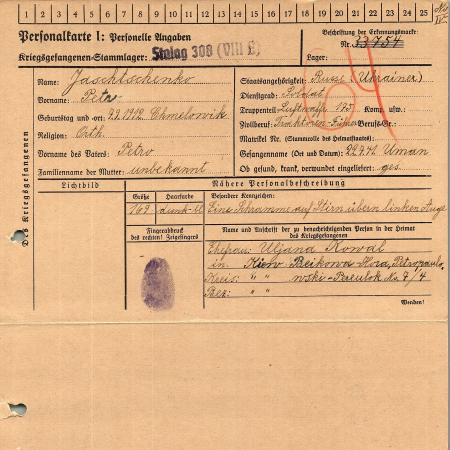 1 2 3 4 5 6 7 8 9 10 11 12 13 14 15 16 17 18 19 20 21 22 23 24 25
Personalkarte I: Personelle Angaben
Kriegsgefangenen-Stammlager: Stalag 308 (VIII E)
Beschriftung der Erkennungsmarke:
Nr. 33754
Lager:
Des Kriegsgefangenen
Name: Jaschtschenko
Vorname: Petr
Geburtstag und -ort: 7.2.1912. Chmelowik
Religion: Orth.
Vorname des Vaters: Petro
Familienname der Mutter: unbekannt
Staatsangehörigkeit: Russe (Ukrainer)
Dienstgrad: Soldat
Truppenteil: Luftwaffe 125 Komp. usw.:
Zivilberuf: Traktoren-Führer Berufs-Gr.:
Matrikel Nr. (Stammrolle des Heimatstaates):
Gefangennahme (Ort und Datum): 22.9.41. Uman
Ob gesund, krank, verwundet eingeliefert: ges.
Lichtbild
Nähere Personalbeschreibung
Größe
Haarfarbe
Besondere Kennzeichen:
169
dunk-bl
Eine Schramme auf Stirn übern linken Auge
Fingerabdruck
des rechten! Zeigefingers
Name und Anschrift der zu benachrichtigenden Person in der Heimat
des Kriegsgefangenen
Ehefrau: Uljana Kowal
in Kiew Beikowa Hora, Petropawlo-
Kreis: " " wski-Pereulok No 7/4
Bez: " "
Wenden!